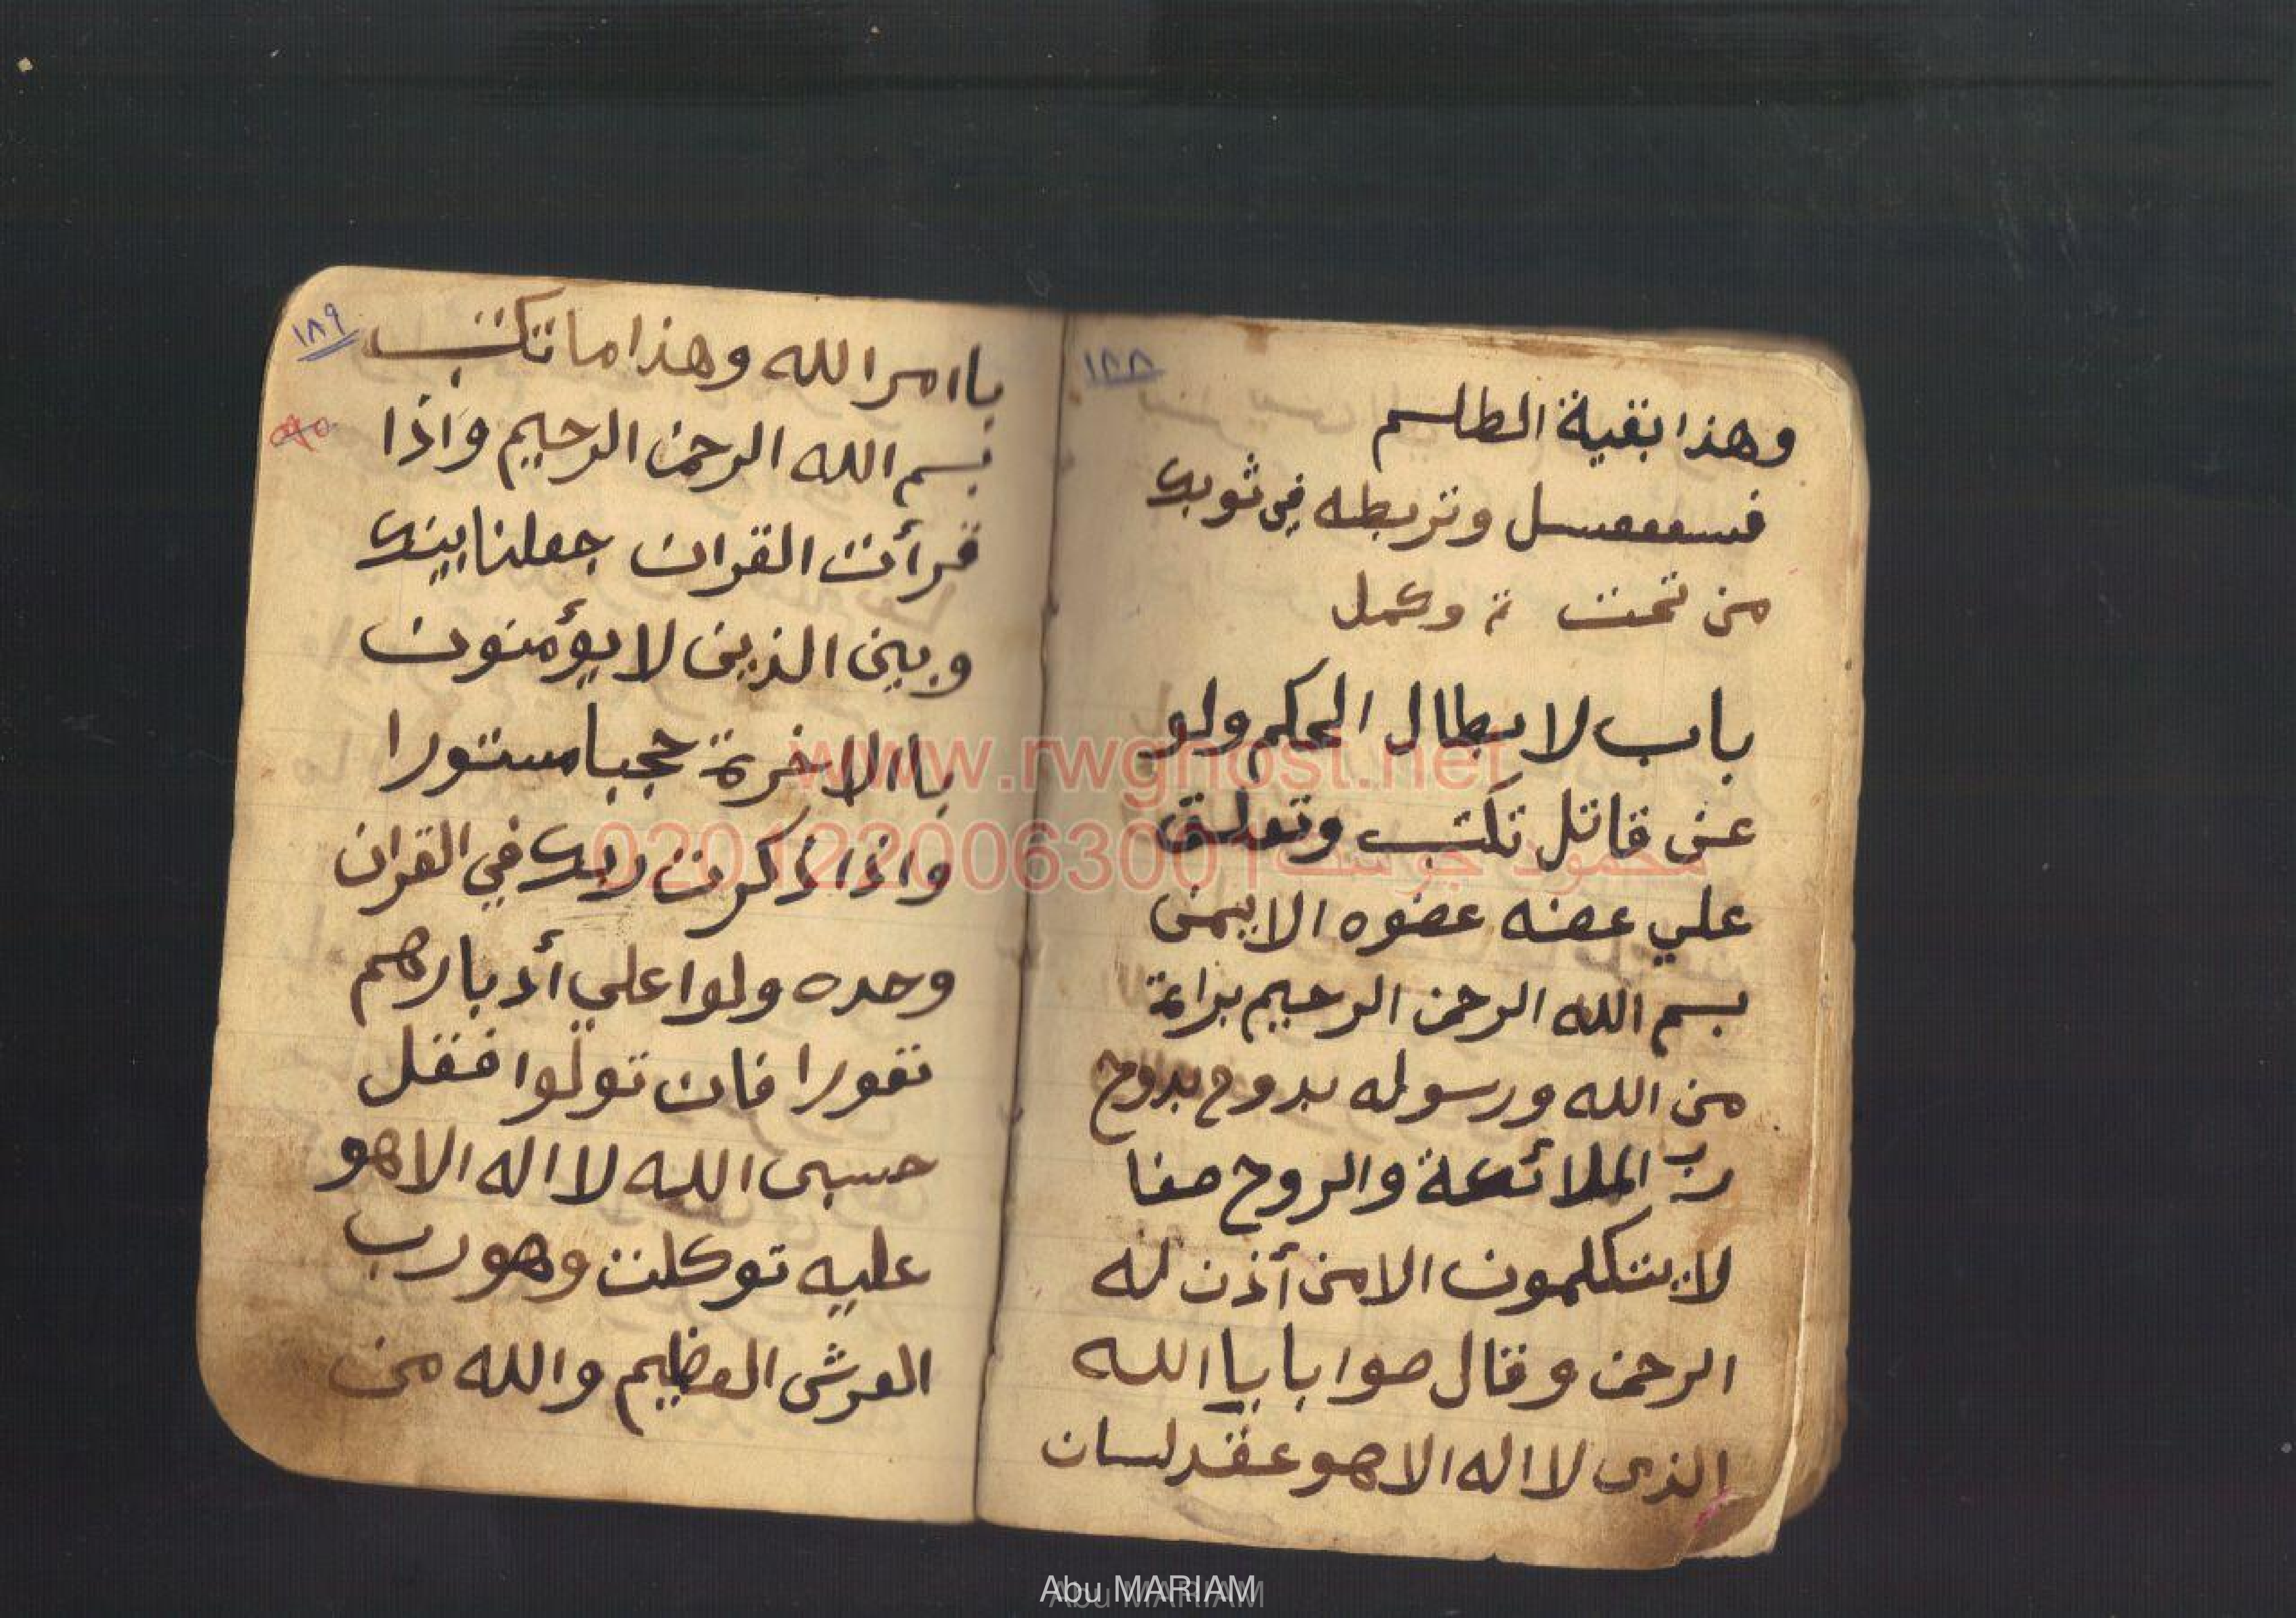 ١٨٨
وهذا بقية الطلسم
وتربطه في ثوبك
من تحت وكمل
باب لابطال الحكم ولو
عن قاتل تكتب وتعلق
علي عضه عضوه الايمن
بسم الله الرحمن الرحيم براءة
من الله ورسوله بدوح بدوح
رب الملائكة والروح صفا
لا يتكلمون الا من أذن له
الرحمن وقال صوابا يا الله
الذي لا اله الا هو عقد لسان
١٨٩
باامر الله وهذا ما تكتب
بسم الله الرحمن الرحيم واذا
قرأت القران جعلنا بينك
وبين الذين لا يؤمنون
باالاخرة حجبا مستورا
واذا ذكرت ربك في القران
وحده ولوا علي أدبارهم
نفورا فان تولوا فقل
حسبى الله لا اله الا هو
عليه توكلت وهو رب
العرش العظيم والله من
www.rwghost.net
محمود جوسته 0201220063001
Abu MARIAM